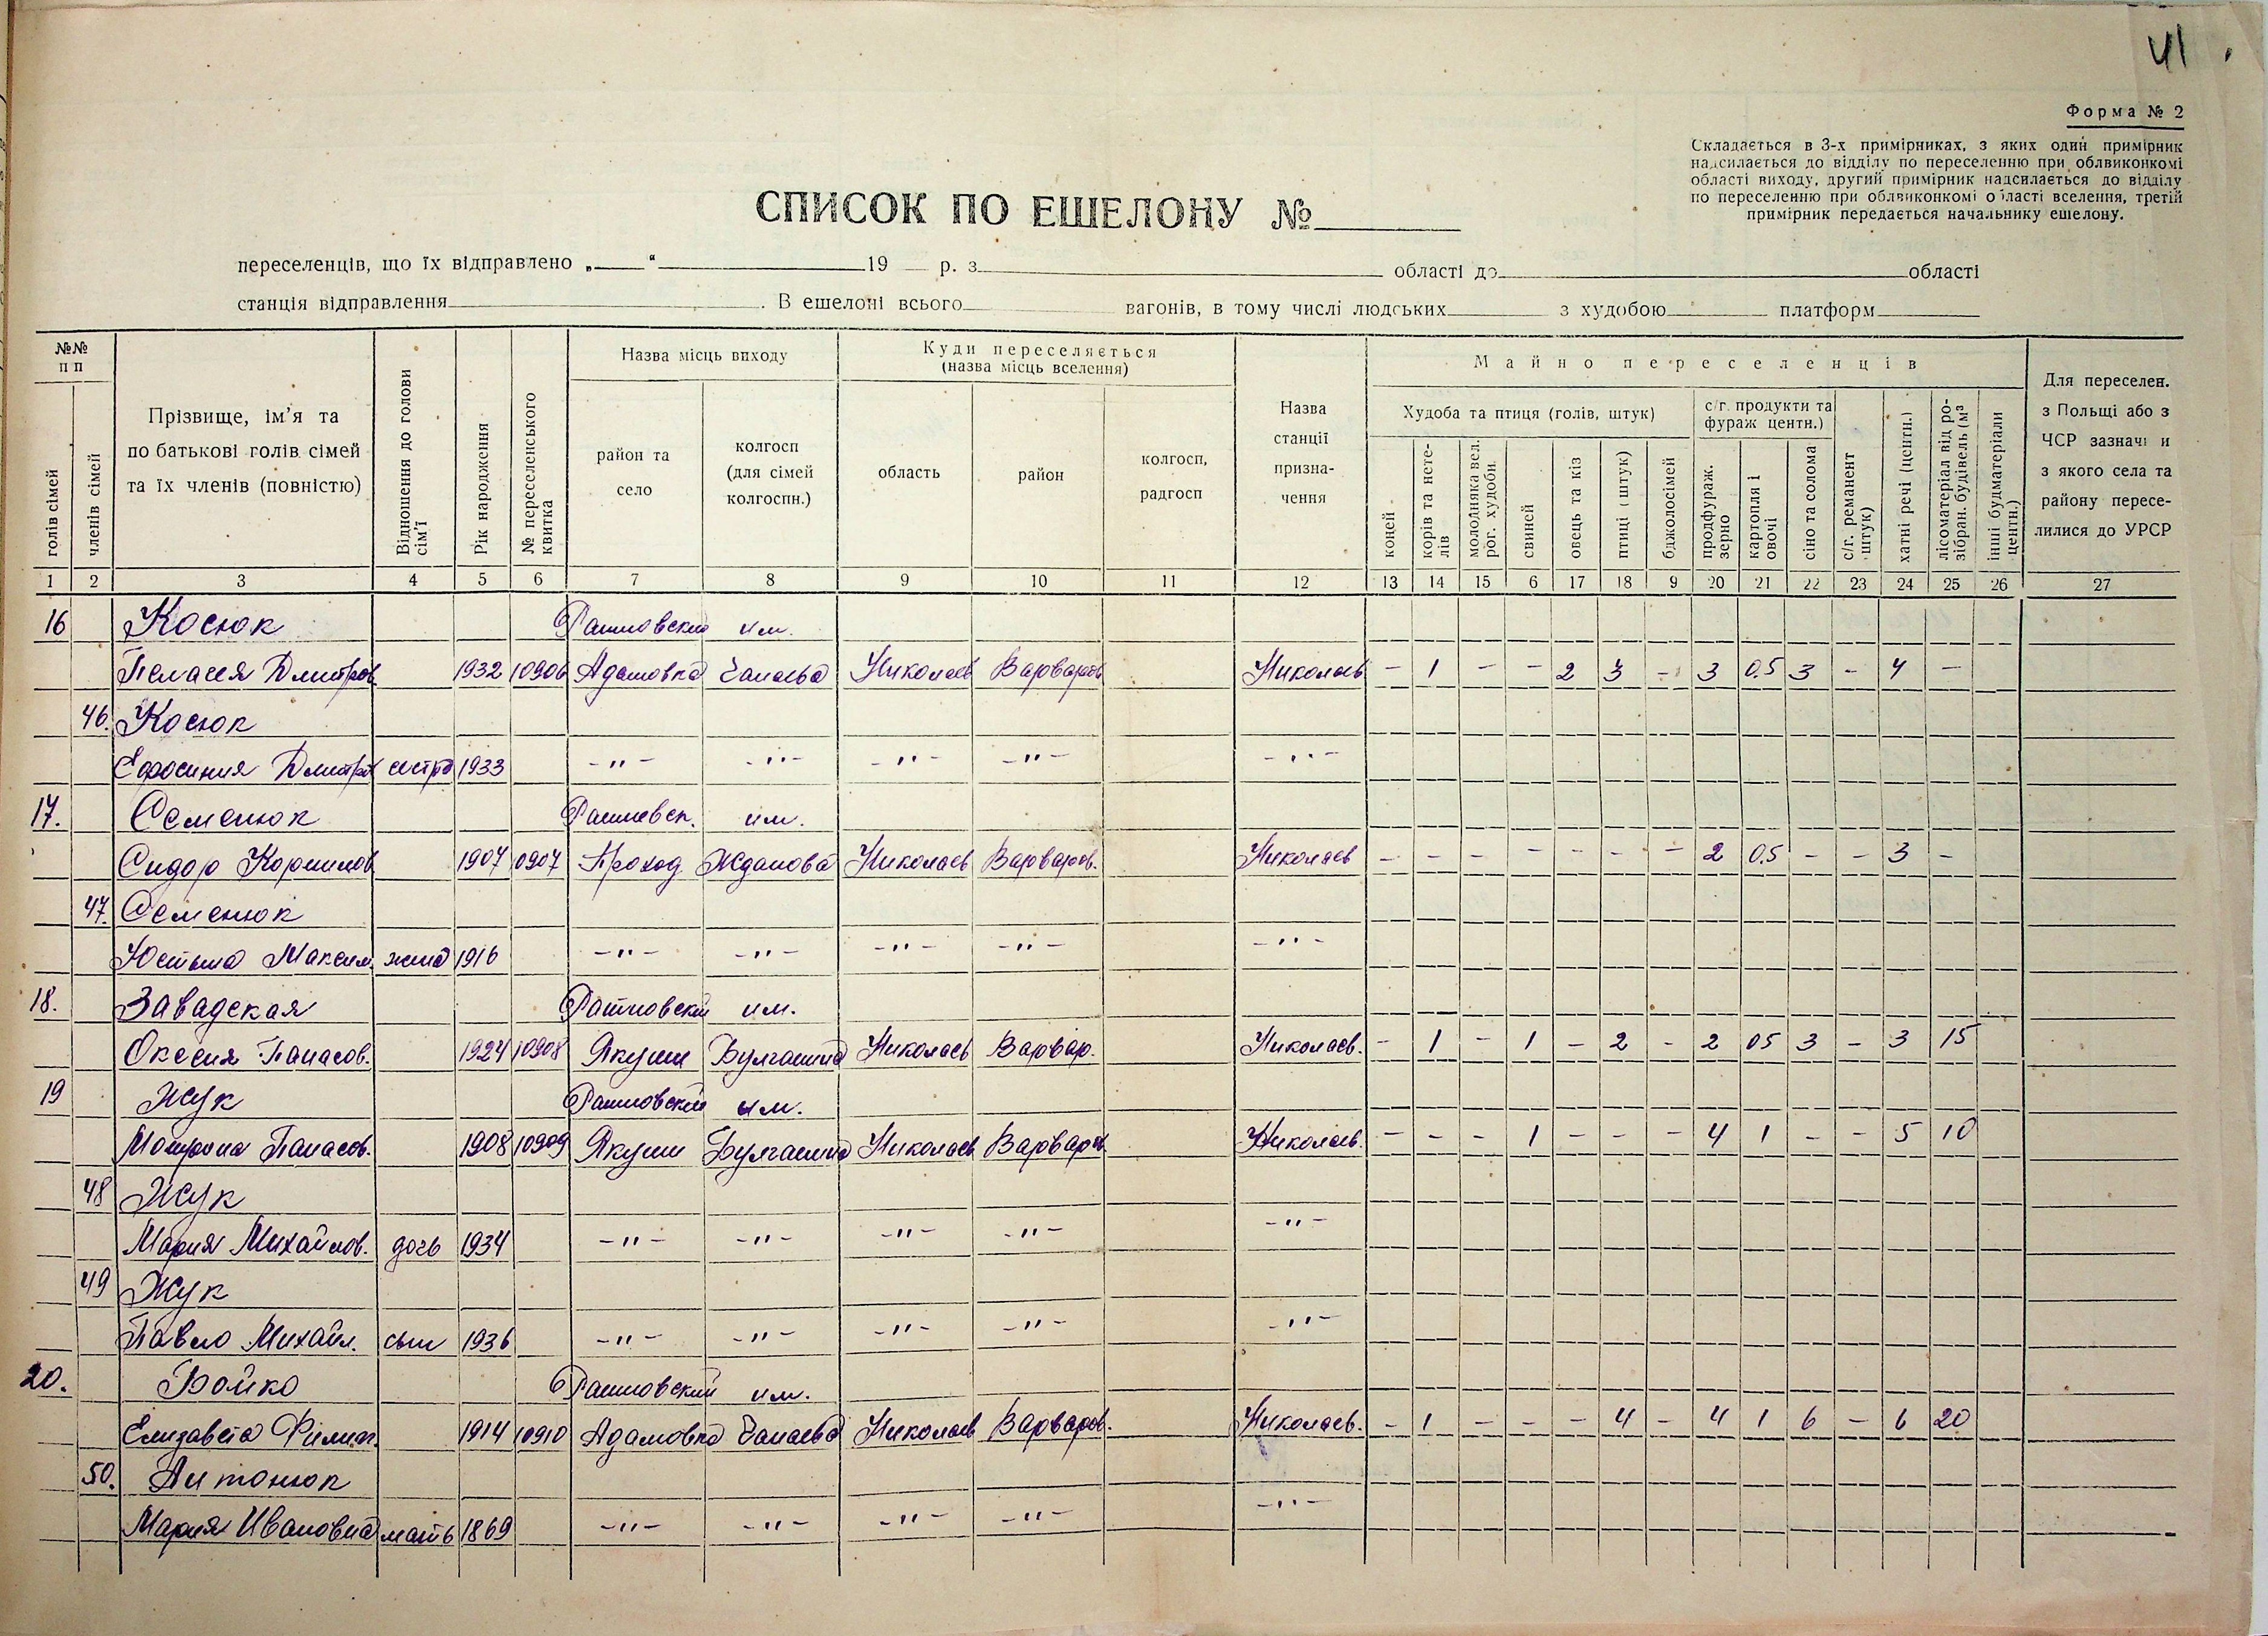 41
Форма № 2
Складається в 3-х примірниках, з яких один примірник
надсилається до відділу по переселенню при облвиконкомі
області виходу, другий примірник надсилається до відділу
по переселенню при облвиконкомі області вселення, третій
примірник передається начальнику ешелону.
СПИСОК ПО ЕШЕЛОНУ №
переселенців, що їх відправлено „ “ 19 р. з області до області
станція відправлення . В ешелоні всього вагонів, в тому числі людських з худобою платформ
№№ пп
голів сімей
членів сімей
Прізвище, ім’я та
по батькові голів сімей
та їх членів (повністю)
Відношення до голови сім’ї
Рік народження
№ переселенського квитка
Назва місць виходу
район та
село
колгосп
(для сімей
колгоспн.)
Куди переселяється
(назва місць вселення)
область
район
колгосп,
радгосп
Назва
станції
призна-
чення
Майно переселенців
Худоба та птиця (голів, штук)
коней
корів та нете-
лів
молодняка вел.
рог. худоби.
свиней
овець та кіз
птиці (штук)
бджолосімей
с/г. продукти та
фураж центн.)
продфураж.
зерно
картопля і
овочі
сіно та солома
с/г. реманент
штук)
хатні речі (центн.)
лісоматеріал від ро-
зібран. будівель (м³
інші будматеріали
центн.)
Для переселен.
з Польщі або з
ЧСР зазначи и
з якого села та
району пересе-
лилися до УРСР
1 2 3 4 5 6 7 8 9 10 11 12 13 14 15 6 17 18 9 20 21 22 23 24 25 26 27
16 Косюк Ратновский им.
Пелагея Дмитров. 1932 10906 Адамовка Чапаева Николаев Варваров Николаев - 1 - - 2 3 - 3 0.5 3 - 4 -
46. Косюк
Ефросиния Дмитр сестра 1933 -"- -"- -"- -"- -"-
17. Семенюк Ратновск. им.
Сидор 1907 10907 Проход Жданова Николаев Варваров. Николаев - - - - - - - 2 0.5 - - 3 -
47. Семенюк
Максим. жена 1916 -"- -"- -"- -"- -"-
18. Завадская Ратновский им.
Оксения Панасов. 1924 10908 Якуши Булганина Николаев Варвар. Николаев. - 1 - 1 - 2 - 2 05 3 - 3 15
19 Жук Ратновский им.
Мотрона Панасов. 1908 10909 Якуши Булганина Николаев Варваров. Николаев. - - - 1 - - - 4 1 - - 5 10
48 Жук
Мария Михайлов. дочь 1934 -"- -"- -"- -"- -"-
49 Жук
Павло Михайл. сын 1936 -"- -"- -"- -"- -"-
20. Бойко Ратновский им.
Елизавета Филип. 1914 10910 Адамовка Чапаева Николаев Варваров. Николаев. - 1 - - - 4 - 4 1 6 - 6 20
50. Антонюк
Мария Ивановна мать 1869 -"- -"- -"- -"- -"-